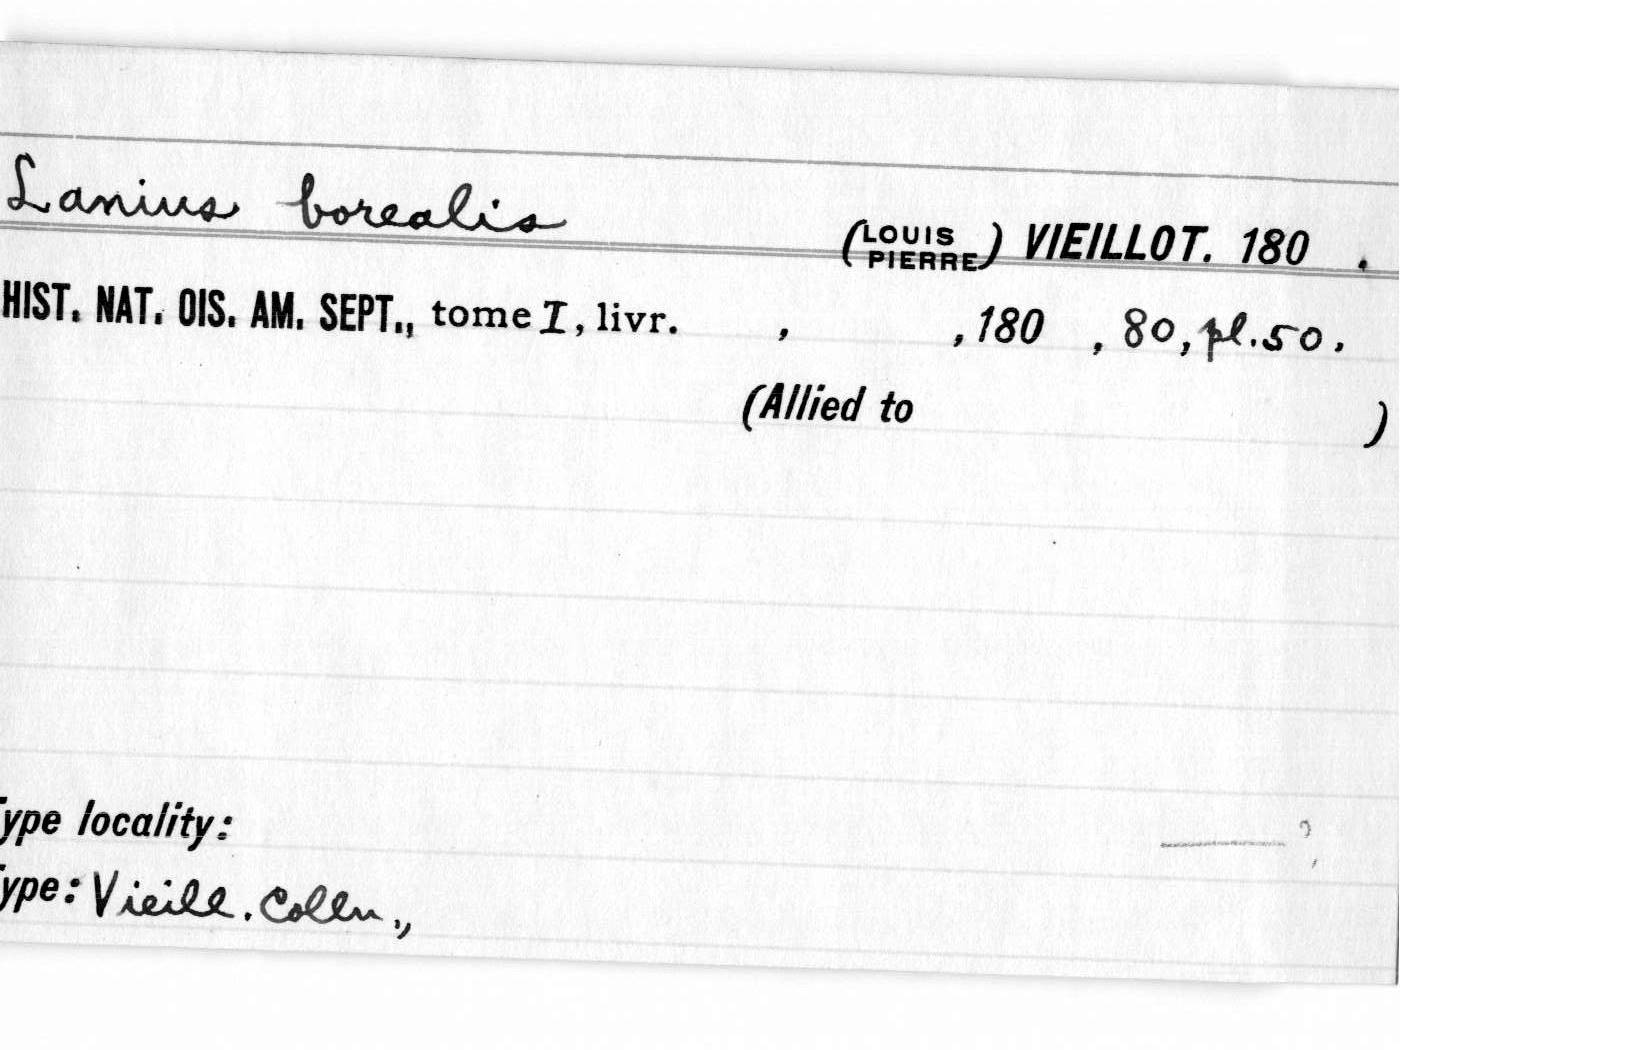 Lanius borealis (LOUIS PIERRE) VIEILLOT. 180 .
HIST. NAT. OIS. AM. SEPT., tome I, livr. , , 180 , 80, pl. 50.
(Allied to )
ype locality: ?
ype: Vieill. Colln.,